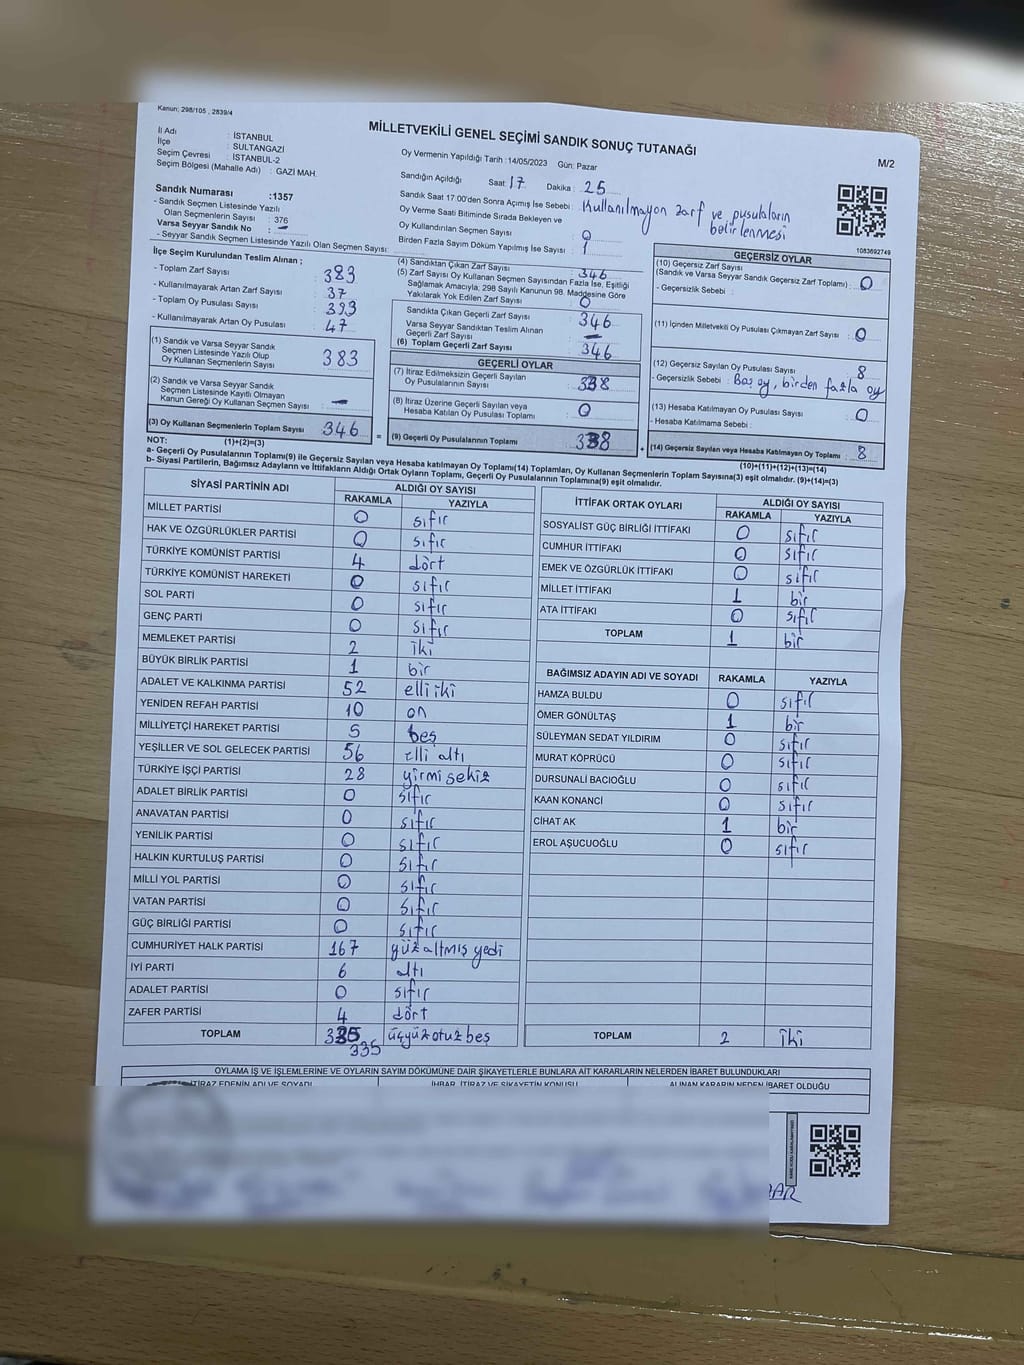 Kanun: 298/105 , 2839/4
MİLLETVEKİLİ GENEL SEÇİMİ SANDIK SONUÇ TUTANAĞI
M/2
İl Adı : İSTANBUL
İlçe : SULTANGAZİ
Seçim Çevresi : İSTANBUL-2
Seçim Bölgesi (Mahalle Adı) : GAZİ MAH.
Oy Vermenin Yapıldığı Tarih : 14/05/2023 Gün: Pazar
Sandığın Açıldığı Saat 17 Dakika : 25
Sandık Saat 17.00'den Sonra Açımış İse Sebebi : Kullanılmayan zarf ve pusulaların
belirlenmesi
Oy Verme Saati Bitiminde Sırada Bekleyen ve
Oy Kullandırılan Seçmen Sayısı : 0
Birden Fazla Sayım Döküm Yapılmış İse Sayısı : 1
1083692749
Sandık Numarası :1357
- Sandık Seçmen Listesinde Yazılı
Olan Seçmenlerin Sayısı : 376
Varsa Seyyar Sandık No : -
- Seyyar Sandık Seçmen Listesinde Yazılı Olan Seçmen Sayısı:
İlçe Seçim Kurulundan Teslim Alınan ;
- Toplam Zarf Sayısı : 383
- Kullanılmayarak Artan Zarf Sayısı : 37
- Toplam Oy Pusulası Sayısı : 393
- Kullanılmayarak Artan Oy Pusulası : 47
(1) Sandık ve Varsa Seyyar Sandık
Seçmen Listesinde Yazılı Olup
Oy Kullanan Seçmenlerin Sayısı : 383
(2) Sandık ve Varsa Seyyar Sandık
Seçmen Listesinde Kayıtlı Olmayan
Kanun Gereği Oy Kullanan Seçmen Sayısı : -
(3) Oy Kullanan Seçmenlerin Toplam Sayısı : 346 =
(4) Sandıktan Çıkan Zarf Sayısı : 346
(5) Zarf Sayısı Oy Kullanan Seçmen Sayısından Fazla İse, Eşitliği
Sağlamak Amacıyla, 298 Sayılı Kanunun 98. Maddesine Göre
Yakılarak Yok Edilen Zarf Sayısı : 0
Sandıkta Çıkan Geçerli Zarf Sayısı : 346
Varsa Seyyar Sandıktan Teslim Alınan
Geçerli Zarf Sayısı : -
(6) Toplam Geçerli Zarf Sayısı : 346
GEÇERLİ OYLAR
(7) İtiraz Edilmeksizin Geçerli Sayılan
Oy Pusulalarının Sayısı : 338
(8) İtiraz Üzerine Geçerli Sayılan veya
Hesaba Katılan Oy Pusulası Toplamı : 0
(9) Geçerli Oy Pusulalarının Toplamı : 338 +
GEÇERSİZ OYLAR
(10) Geçersiz Zarf Sayısı
(Sandık ve Varsa Seyyar Sandık Geçersiz Zarf Toplamı) : 0
- Geçersizlik Sebebi :
(11) İçinden Milletvekili Oy Pusulası Çıkmayan Zarf Sayısı : 0
(12) Geçersiz Sayılan Oy Pusulası Sayısı : 8
- Geçersizlik Sebebi : Boş oy, birden fazla oy
(13) Hesaba Katılmayan Oy Pusulası Sayısı : 0
- Hesaba Katılmama Sebebi :
(14) Geçersiz Sayılan veya Hesaba Katılmayan Oy Toplamı : 8
NOT: (1)+(2)=(3)
(10)+(11)+(12)+(13)=(14)
a- Geçerli Oy Pusulalarının Toplamı(9) ile Geçersiz Sayılan veya Hesaba katılmayan Oy Toplamı(14) Toplamları, Oy Kullanan Seçmenlerin Toplam Sayısına(3) eşit olmalıdır. (9)+(14)=(3)
b- Siyasi Partilerin, Bağımsız Adayların ve İttifakların Aldığı Ortak Oyların Toplamı, Geçerli Oy Pusulalarının Toplamına(9) eşit olmalıdır.
SİYASİ PARTİNİN ADI ALDIĞI OY SAYISI
RAKAMLA YAZIYLA
MİLLET PARTİSİ 0 sıfır
HAK VE ÖZGÜRLÜKLER PARTİSİ 0 sıfır
TÜRKİYE KOMÜNİST PARTİSİ 4 dört
TÜRKİYE KOMÜNİST HAREKETİ 0 sıfır
SOL PARTİ 0 sıfır
GENÇ PARTİ 0 sıfır
MEMLEKET PARTİSİ 2 iki
BÜYÜK BİRLİK PARTİSİ 1 bir
ADALET VE KALKINMA PARTİSİ 52 elli iki
YENİDEN REFAH PARTİSİ 10 on
MİLLİYETÇİ HAREKET PARTİSİ 5 beş
YEŞİLLER VE SOL GELECEK PARTİSİ 56 elli altı
TÜRKİYE İŞÇİ PARTİSİ 28 yirmi sekiz
ADALET BİRLİK PARTİSİ 0 sıfır
ANAVATAN PARTİSİ 0 sıfır
YENİLİK PARTİSİ 0 sıfır
HALKIN KURTULUŞ PARTİSİ 0 sıfır
MİLLİ YOL PARTİSİ 0 sıfır
VATAN PARTİSİ 0 sıfır
GÜÇ BİRLİĞİ PARTİSİ 0 sıfır
CUMHURİYET HALK PARTİSİ 167 yüz altmış yedi
İYİ PARTİ 6 altı
ADALET PARTİSİ 0 sıfır
ZAFER PARTİSİ 4 dört
TOPLAM 335 üçyüz otuz beş
335
İTTİFAK ORTAK OYLARI ALDIĞI OY SAYISI
RAKAMLA YAZIYLA
SOSYALİST GÜÇ BİRLİĞİ İTTİFAKI 0 sıfır
CUMHUR İTTİFAKI 0 sıfır
EMEK VE ÖZGÜRLÜK İTTİFAKI 0 sıfır
MİLLET İTTİFAKI 1 bir
ATA İTTİFAKI 0 sıfır
TOPLAM 1 bir
BAĞIMSIZ ADAYIN ADI VE SOYADI RAKAMLA YAZIYLA
HAMZA BULDU 0 sıfır
ÖMER GÖNÜLTAŞ 1 bir
SÜLEYMAN SEDAT YILDIRIM 0 sıfır
MURAT KÖPRÜCÜ 0 sıfır
DURSUNALİ BACIOĞLU 0 sıfır
KAAN KONANCİ 0 sıfır
CİHAT AK 1 bir
EROL AŞUCUOĞLU 0 sıfır
TOPLAM 2 iki
OYLAMA İŞ VE İŞLEMLERİNE VE OYLARIN SAYIM DÖKÜMÜNE DAİR ŞİKAYETLERLE BUNLARA AİT KARARLARIN NELERDEN İBARET BULUNDUKLARI
İTİRAZ EDENİN ADI VE SOYADI İHBAR, İTİRAZ VE ŞİKAYETİN KONUSU ALINAN KARARIN NEDEN İBARET OLDUĞU